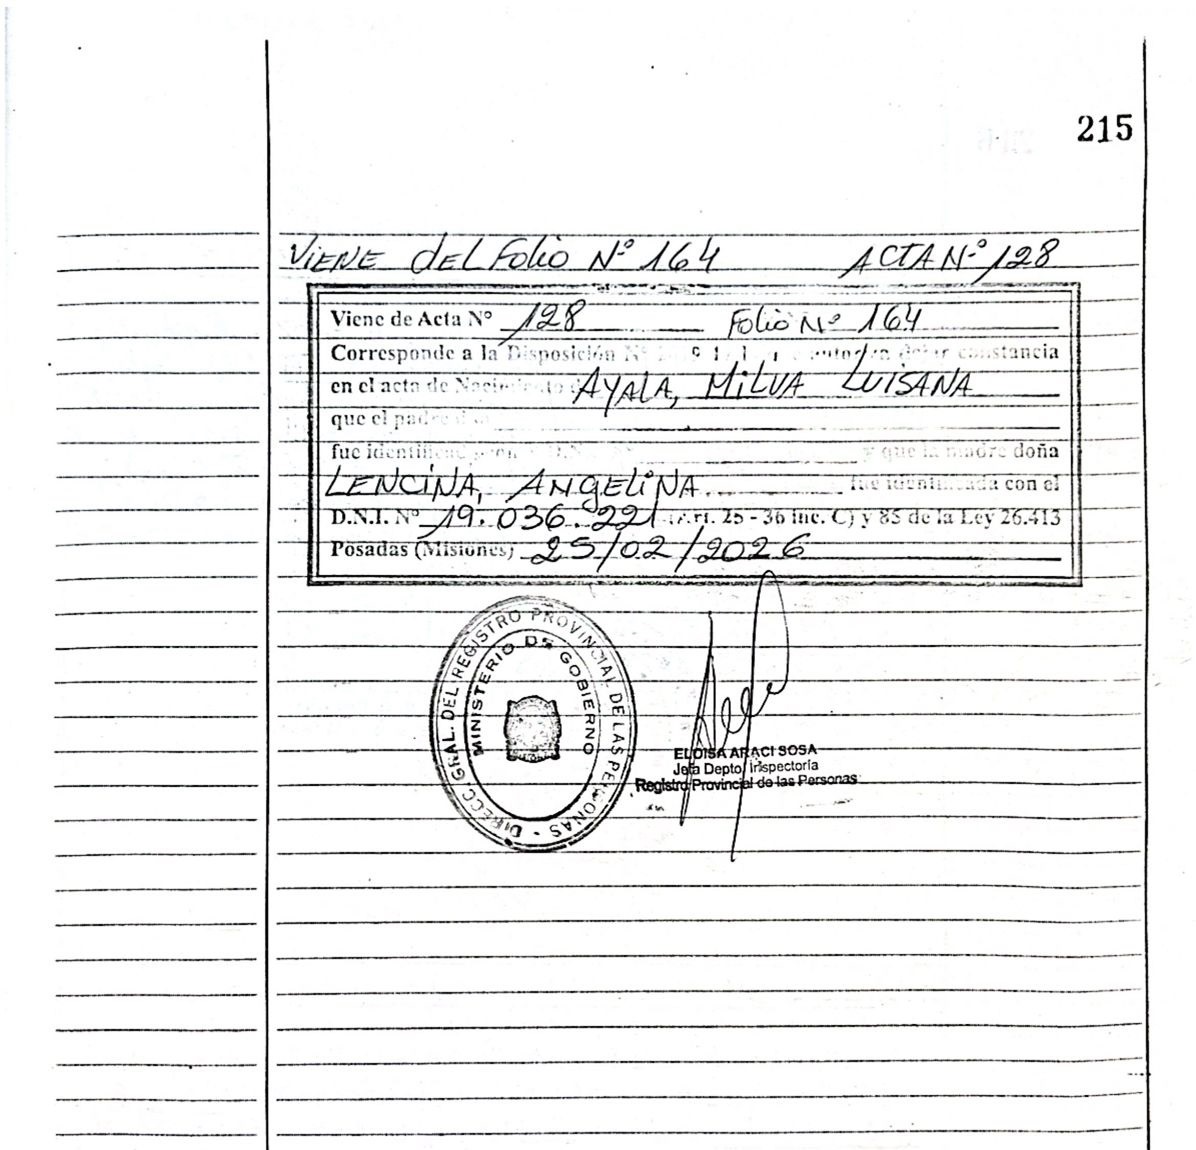 215
VIENE DEL FOLIO Nº 164 ACTA Nº 128
Viene de Acta Nº 128 FOLIO Nº 164
Corresponde a la Disposición Nº constancia
en el acta de Nacimiento AYALA, MILVA LUISANA
que el padre
fue identificad y que la madre doña
LENCINA, ANGELINA fue identificada con el
D.N.I. Nº 19.036.221 (Art. 25 - 36 inc. C) y 85 de la Ley 26.413
Posadas (Misiones) 25/02/2026
DIRECC. GRAL. DEL REGISTRO PROVINCIAL DE LAS PERSONAS -
MINISTERIO DE GOBIERNO
ELOISA ARACI SOSA
Jefa Depto. Inspectoría
Registro Provincial de las Personas